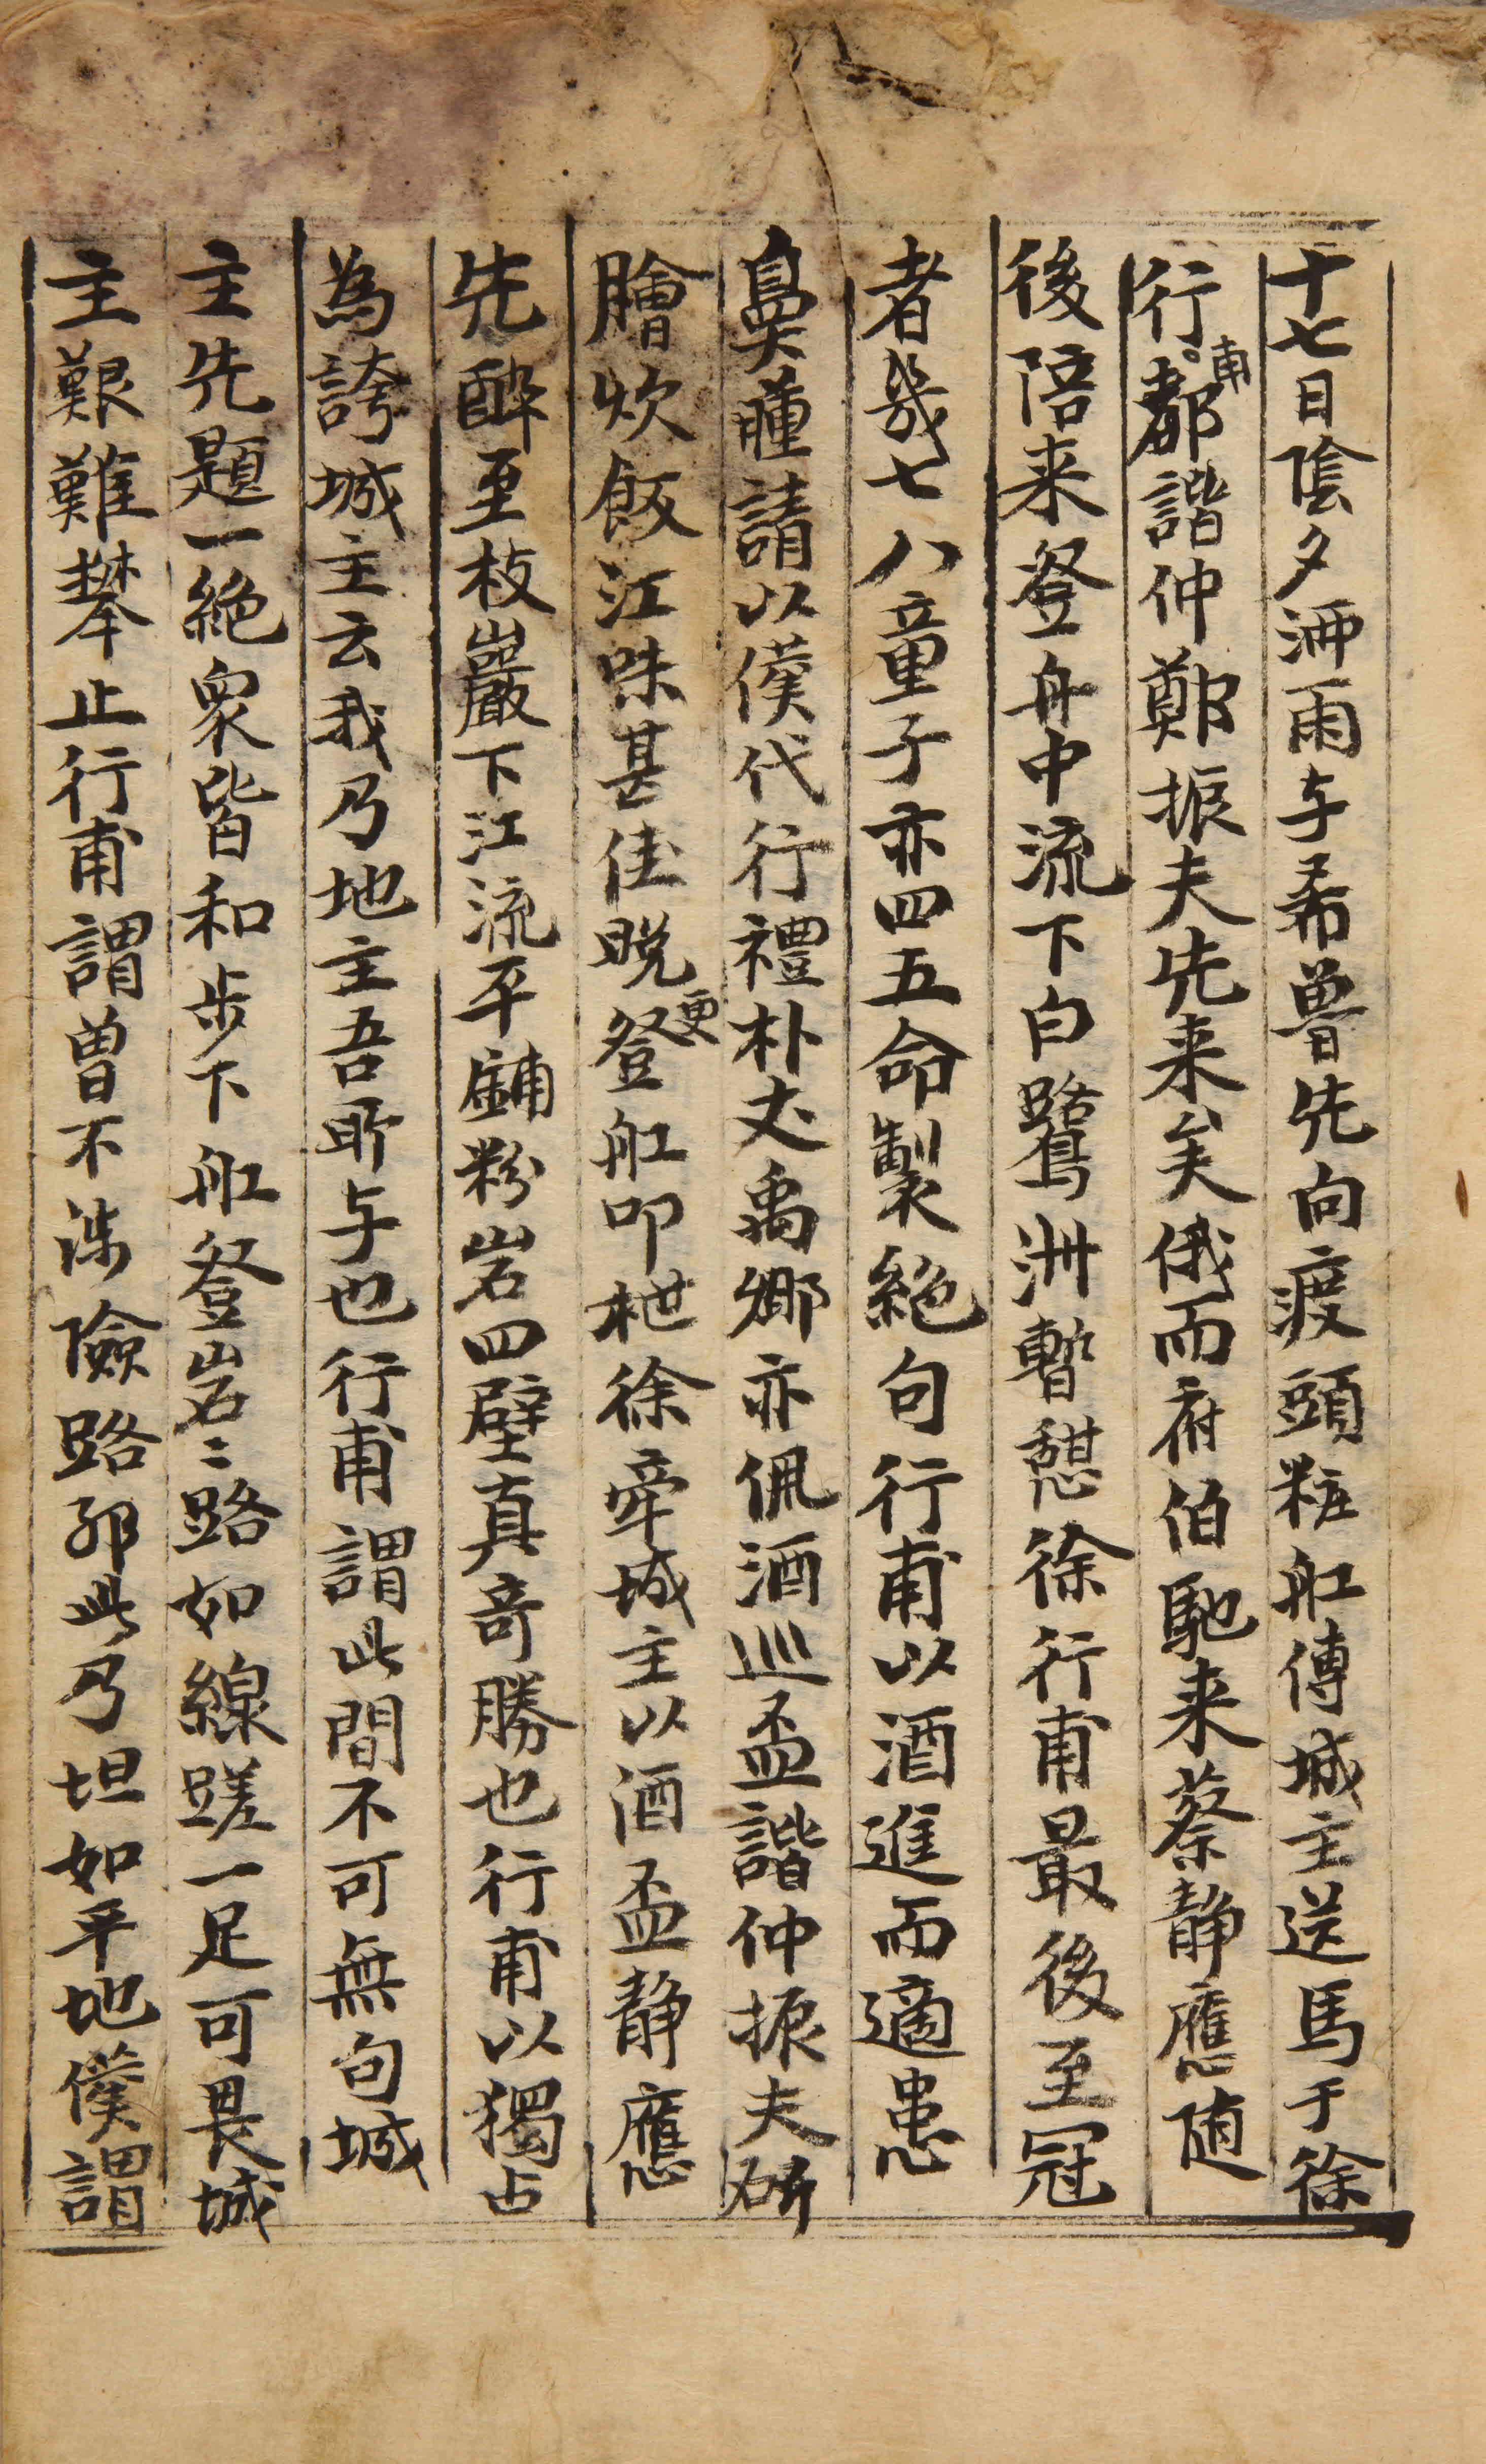 十七日陰夕洒雨与希魯先向渡頭粧舡傳城主送馬于徐
行甫都諧仲鄭振夫先来矣俄而府伯馳来蔡静應随
後陪来登舟中流下白鷺洲暫憩徐行甫最後至冠
者幾七八童子亦四五命製絶句行甫以酒進而適患
鼻瘇請以僕代行禮朴丈禹卿亦佩酒巡盃諧仲振夫斫
膾炊飯江味甚佳晩更登舡叩枻徐牽城主以酒盃静應
先醉至枝巖下江流平鋪粉岩四壁真竒勝也行甫以獨占
為誇城主云我乃地主吾所与也行甫謂此間不可無句城
主先題一絶衆皆和步下舡登岩〻路如線蹉一足可畏城
主艱難攀止行甫謂曽不涉險路耶此乃坦如平地僕謂